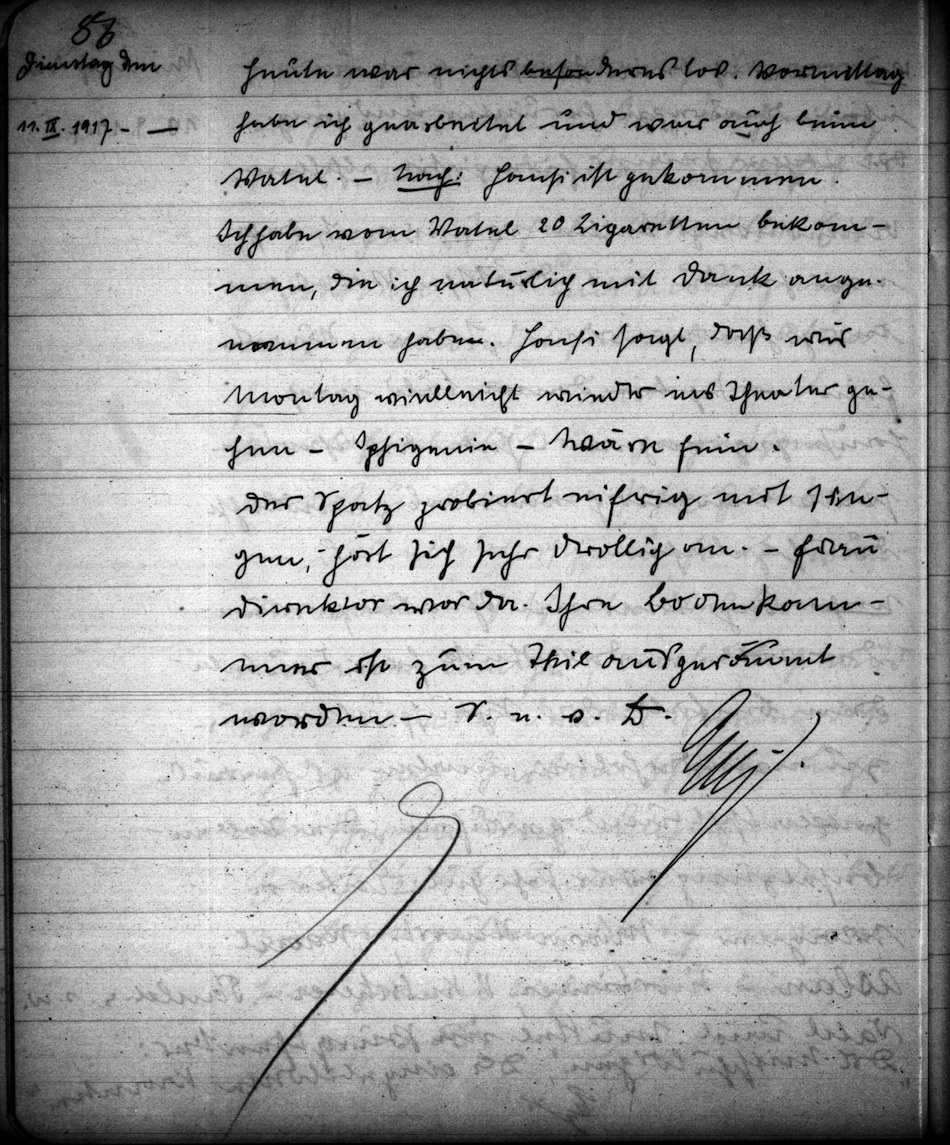 86
Dienstag den
11. IX. 1917. – —
Heute war nichts besonderes los. Vormittag
habe ich gearbeitet und war auch beim
Vatel. – Nach: Hansi ist gekommen.
Ich habe vom Vatel 20 Zigaretten bekom-
men, die ich natürlich mit Dank ange-
nommen habe. Hansi sagt, daß wir
Montag vielleicht wieder ins Theater ge-
hen – Iphigenie – Wäre fein.
Der Spatz probiert eifrig mit sin-
gen, hört sich sehr drollig an. – Frau
Direktor war da. Ihre Bodenkam-
mer ist zum Theil ausgeräumt
worden – S. u. s. D.